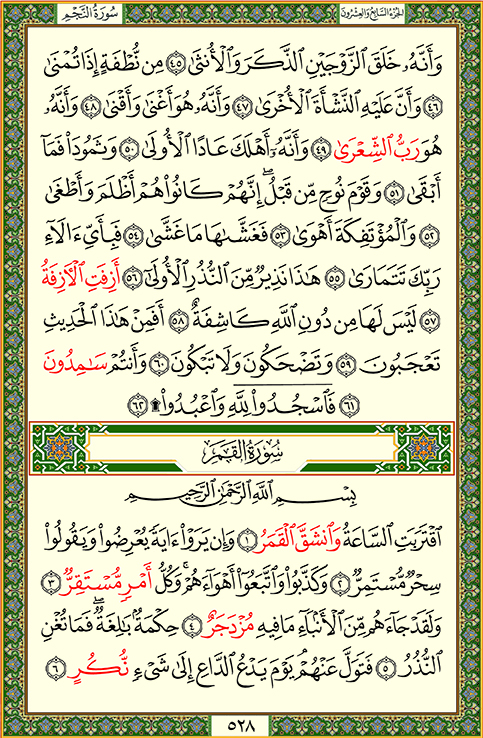 الجزء السابع والعشرون
سُورَةُ النَّجْمِ
وَأَنَّهُۥ خَلَقَ ٱلزَّوْجَيْنِ ٱلذَّكَرَ وَٱلْأُنثَىٰ ٤٥ مِن نُّطْفَةٍ إِذَا تُمْنَىٰ
٤٦ وَأَنَّ عَلَيْهِ ٱلنَّشْأَةَ ٱلْأُخْرَىٰ ٤٧ وَأَنَّهُۥ هُوَ أَغْنَىٰ وَأَقْنَىٰ ٤٨ وَأَنَّهُۥ
هُوَ رَبُّ ٱلشِّعْرَىٰ ٤٩ وَأَنَّهُۥٓ أَهْلَكَ عَادًا ٱلْأُولَىٰ ٥٠ وَثَمُودَا۟ فَمَآ
أَبْقَىٰ ٥١ وَقَوْمَ نُوحٍ مِّن قَبْلُ ۖ إِنَّهُمْ كَانُوا۟ هُمْ أَظْلَمَ وَأَطْغَىٰ
٥٢ وَٱلْمُؤْتَفِكَةَ أَهْوَىٰ ٥٣ فَغَشَّىٰهَا مَا غَشَّىٰ ٥٤ فَبِأَىِّ ءَالَآءِ
رَبِّكَ تَتَمَارَىٰ ٥٥ هَٰذَا نَذِيرٌ مِّنَ ٱلنُّذُرِ ٱلْأُولَىٰٓ ٥٦ أَزِفَتِ ٱلْءَازِفَةُ
٥٧ لَيْسَ لَهَا مِن دُونِ ٱللَّهِ كَاشِفَةٌ ٥٨ أَفَمِنْ هَٰذَا ٱلْحَدِيثِ
تَعْجَبُونَ ٥٩ وَتَضْحَكُونَ وَلَا تَبْكُونَ ٦٠ وَأَنتُمْ سَٰمِدُونَ
٦١ فَٱسْجُدُوا۟ لِلَّهِ وَٱعْبُدُوا۟ ۩ ٦٢
سُورَةُ القَمَرِ
بِسْمِ ٱللَّهِ ٱلرَّحْمَٰنِ ٱلرَّحِيمِ
ٱقْتَرَبَتِ ٱلسَّاعَةُ وَٱنشَقَّ ٱلْقَمَرُ ١ وَإِن يَرَوْا۟ ءَايَةً يُعْرِضُوا۟ وَيَقُولُوا۟
سِحْرٌ مُّسْتَمِرٌّ ٢ وَكَذَّبُوا۟ وَٱتَّبَعُوٓا۟ أَهْوَآءَهُمْ ۚ وَكُلُّ أَمْرٍ مُّسْتَقِرٌّ ٣
وَلَقَدْ جَآءَهُم مِّنَ ٱلْأَنۢبَآءِ مَا فِيهِ مُزْدَجَرٌ ٤ حِكْمَةٌۢ بَٰلِغَةٌ ۖ فَمَا تُغْنِ
ٱلنُّذُرُ ٥ فَتَوَلَّ عَنْهُمْ ۘ يَوْمَ يَدْعُ ٱلدَّاعِ إِلَىٰ شَىْءٍ نُّكُرٍ ٦
٥٢٨